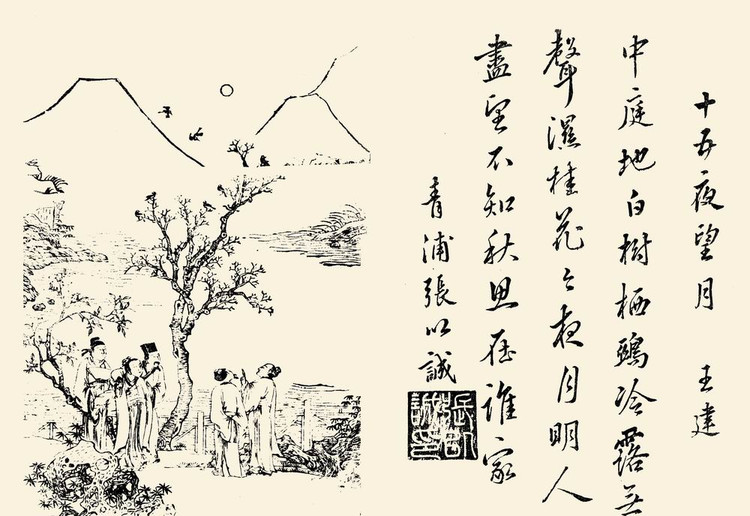 十五夜望月 王建
中庭地白樹栖鵶冷露無
聲濕桂花今夜月明人
盡望不知秋思在誰家
青浦張以誠
張以誠印